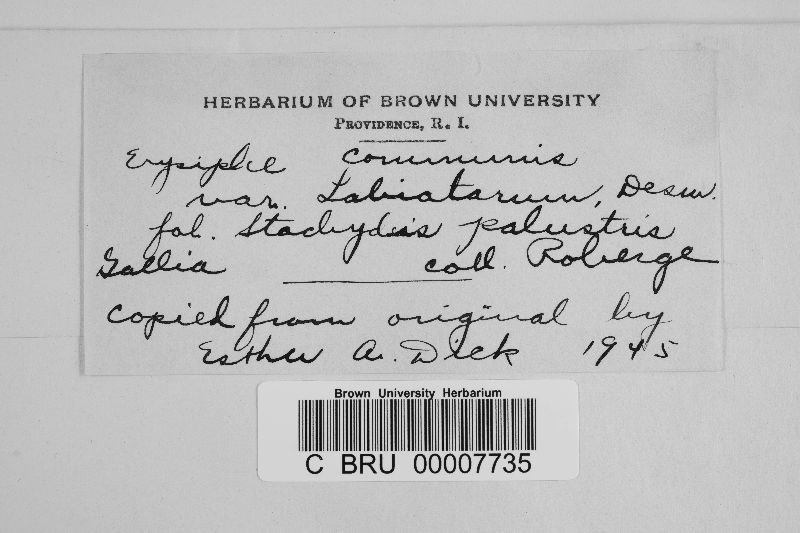 HERBARIUM OF BROWN UNIVERSITY
PROVIDENCE, R. I.
Erysiphe communis
var. Labiatarum, Desm.
fol. Stachydis palustris
Gallia coll. Roberge
Copied from original by
Esther A. Dick 1945
Brown University Herbarium
C BRU 00007735